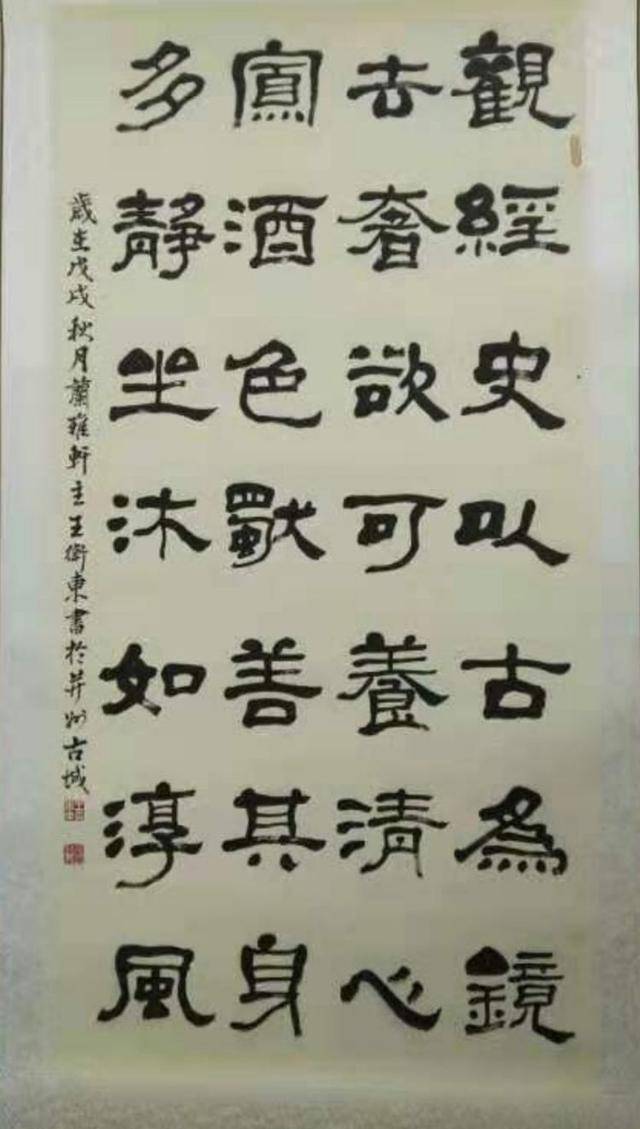 觀經史以古為鏡
去奢欲可養清心
寡酒色獸善其身
多靜坐沐如淳風
歲在戊戌秋月蘭雅軒主王衛東書於并州古城